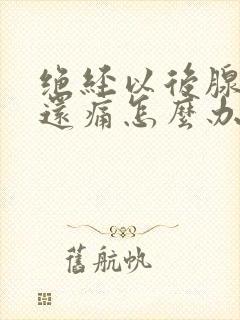 绝經以後腺
還痛怎麼办
舊航帆